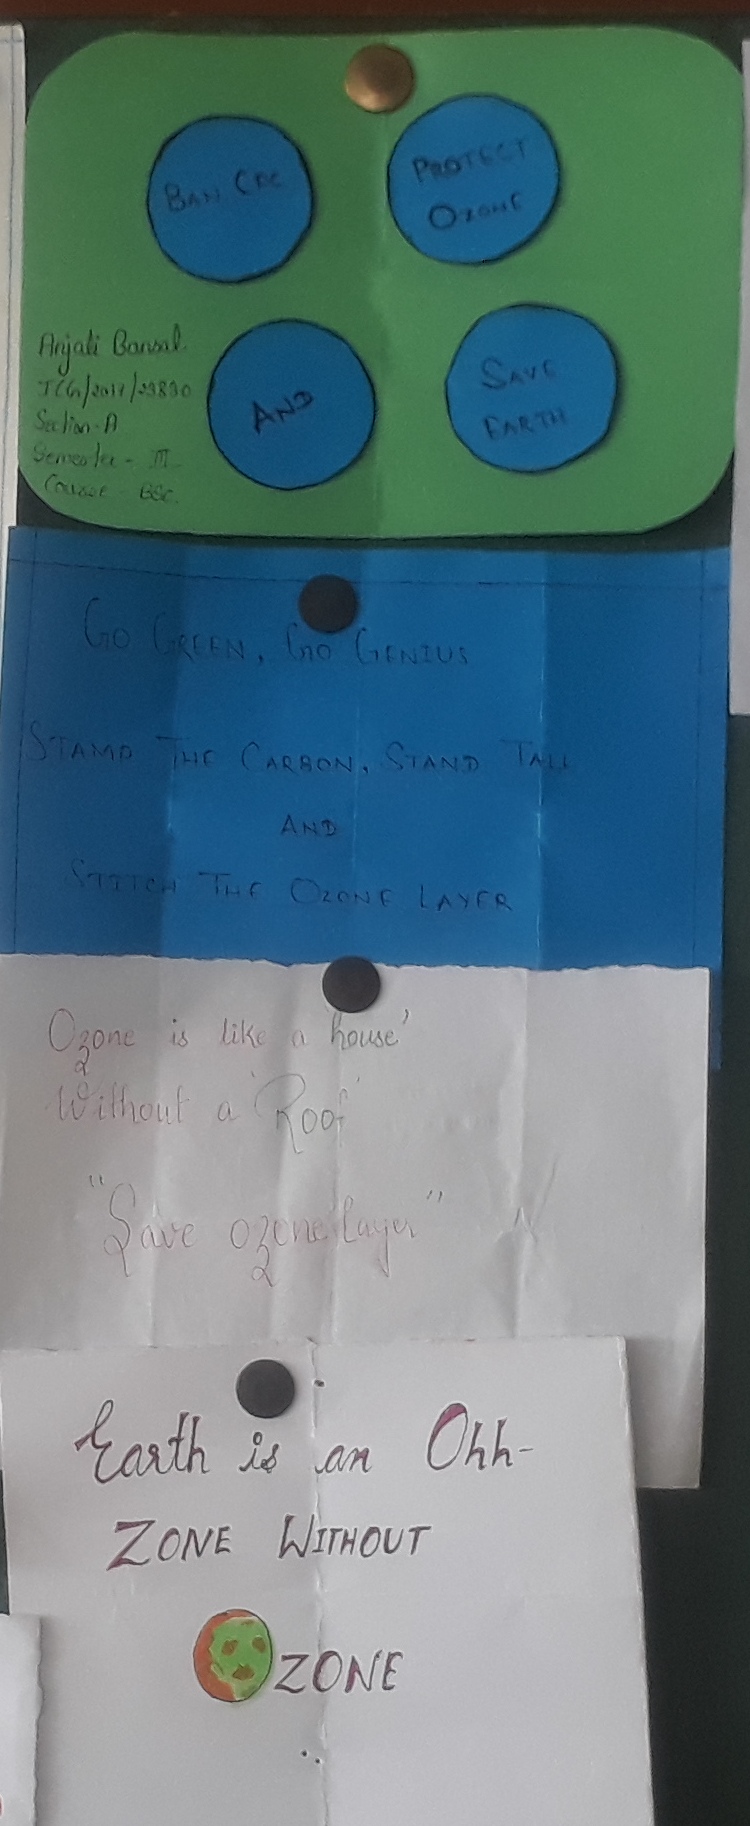 BAN CFC
PROTECT
OZONE
AND
SAVE
EARTH
Anjali Bansal
Section-A
Semester - III
Course - BSc.
GO GREEN, GO GENIUS
STAMP THE CARBON, STAND TALL
AND
STITCH THE OZONE LAYER
Ozone is like a 'house'
Without a 'Roof'
"Save ozone layer"
Earth is an Ohh-
ZONE WITHOUT
OZONE